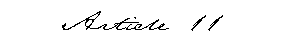 Article 11